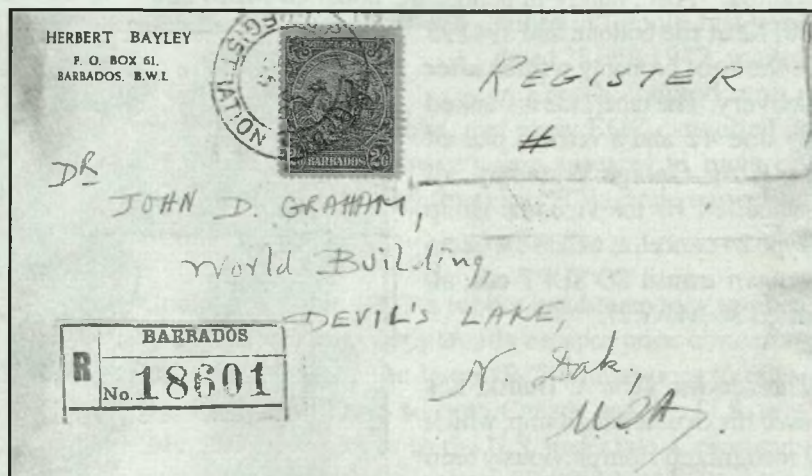 HERBERT BAYLEY
P. O. BOX 61,
BARBADOS, B.W.I.
REGISTRATION
2/6 BARBADOS 2/6
REGISTER
#
DR
JOHN D. GRAHAM,
World Building,
DEVIL'S LAKE,
N Dak,
U.S.A.
BARBADOS
R No. 18601